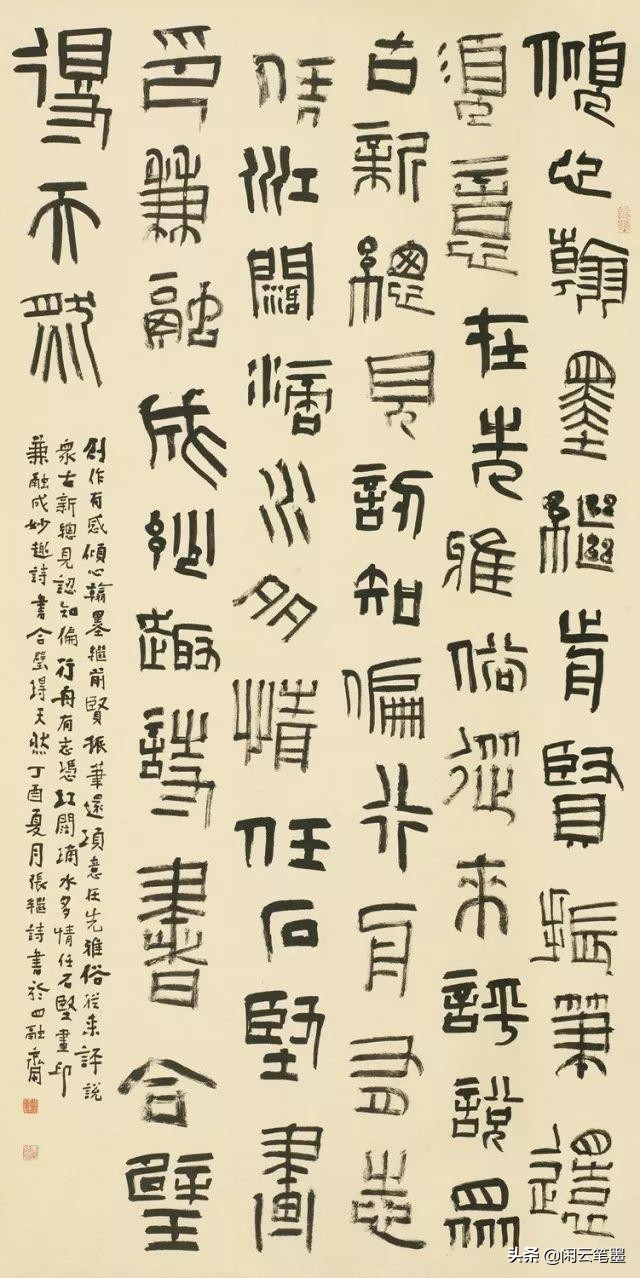 傾心翰墨繼前賢振筆還
須意在先雅俗從來評說眾
古新總見認知偏行舟有志
凭江闊滴水多情任石堅畫
印兼融成妙趣詩書合璧
得天然
創作有感傾心翰墨繼前賢振筆還須意在先雅俗從來評說
眾古新總見認知偏行舟有志憑江闊滴水多情任石堅畫印
兼融成妙趣詩書合璧得天然丁酉夏月張繼詩書於四融齋
头条 @闲云笔墨